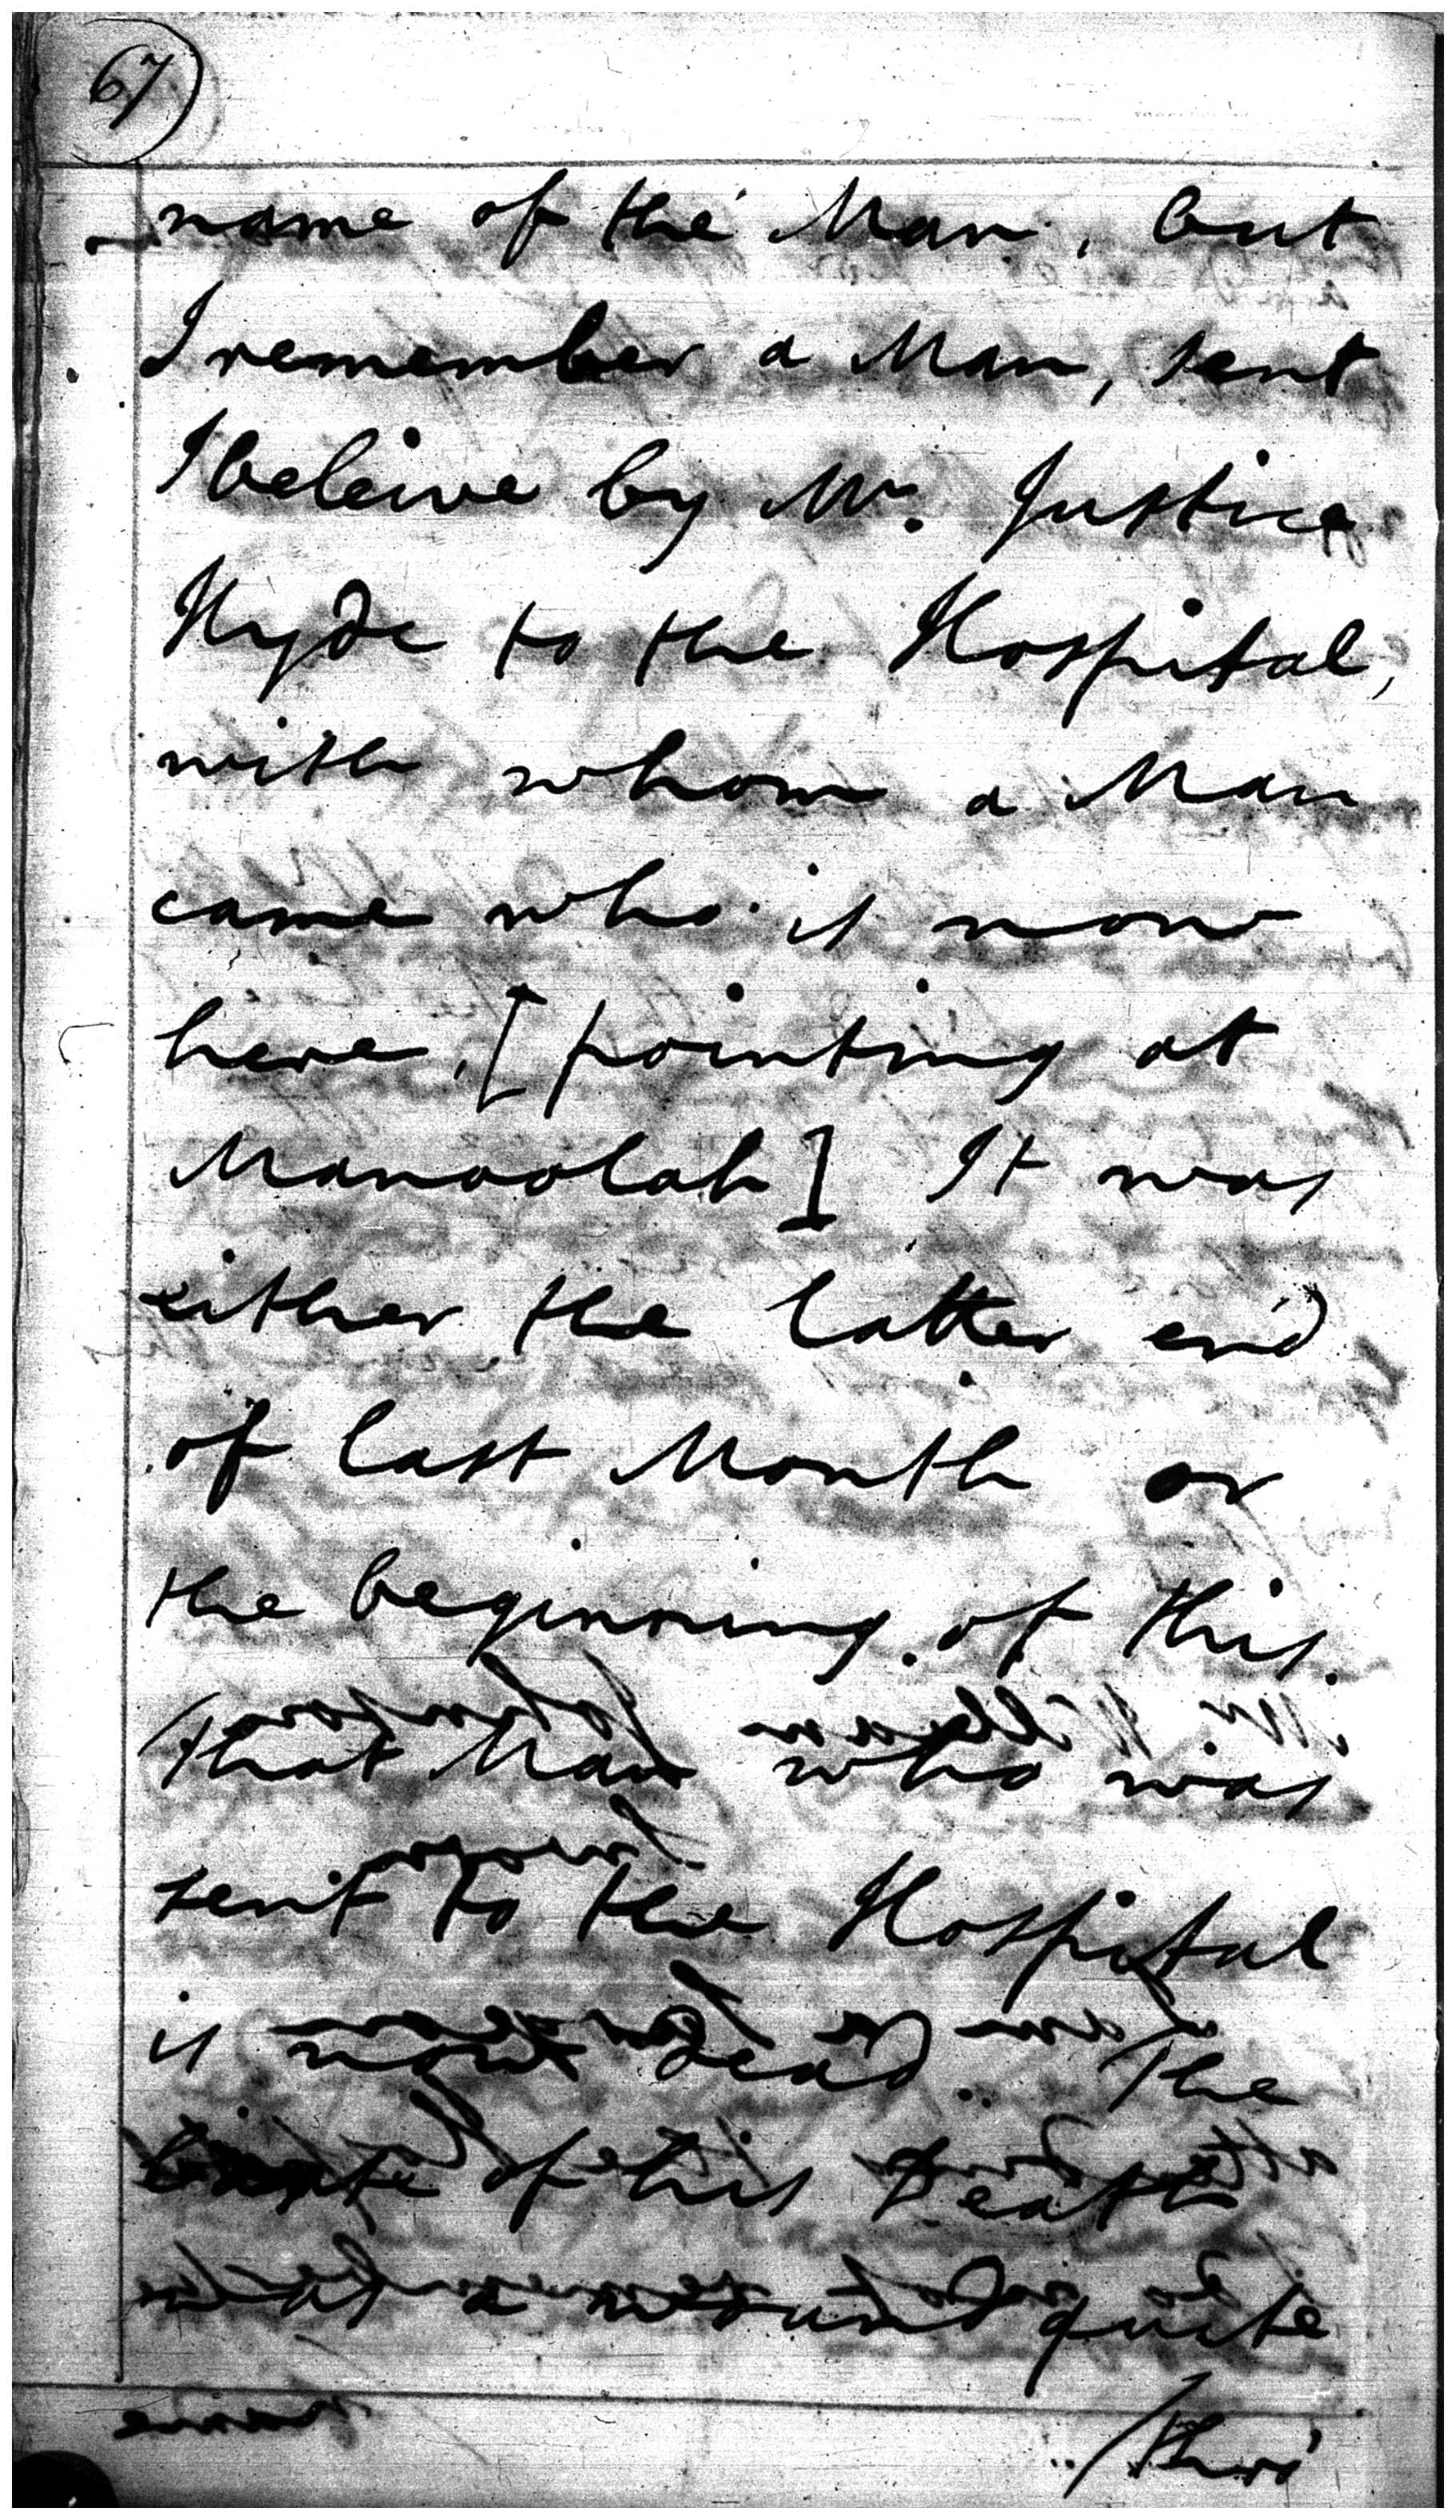 67
name of the Man, but
I remember a Man, sent
I beleive by Mr. Justice
Hyde to the Hospital,
with whom a Man
came who is now
here, [pointing at
Manoolah] It was
either the latter end
of last Month or
the beginning of this.
That Man who was
sent to the Hospital
is now dead. The
of his Death
was a wound quite
/thro'